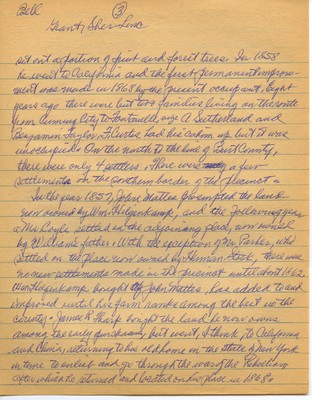 Bell
3
Grant, Sher-Linc
set out a portion of fruit and forest trees. In 1858
he went to California and the first permanent improve-
ment was made in 1868 by the present occupant. Eight
years ago there were but two families living on this route
from Arming City to Fontanelle, viz A Sutherland and
Benjamin Taylor. F. Curtis had his cabin up but it was
unoccupied. On the north to the line of Burt County,
there were only 4 settlers. There were a few
settlements on the southern border of the precinct.
In the year 1857, John Mattes pre-empted the land
now owned by Wm. Hilgenkamp, and the following year
a Mr. Coyle settled on the adjoining place, now owned
by Williams father. With the exception of Mr. Parker, who
settled on the place now owned by Herman Stork, there were
no new settlements made in the precinct until about 1862.
Wm Hilgenkamp bought of John Mattes, has added to and
improved until his farm ranks among the best in the
county. James R. Tharp bought the land he now owns
among the early purchasers, but went, I think, to California
and China, returning to his old home in the state of New York
in time to enlist and go through the war of the Rebellion
after which he returned and located on his place in 1868.